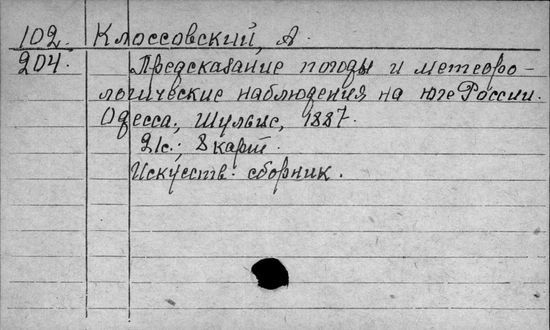 102. Клоссовский, А.
204. Предсказание погоды и метеоро-
логические наблюдения на юге России.
Одесса, Шульис, 1887.
21с.; 8 карт.
Искусств. сборник.